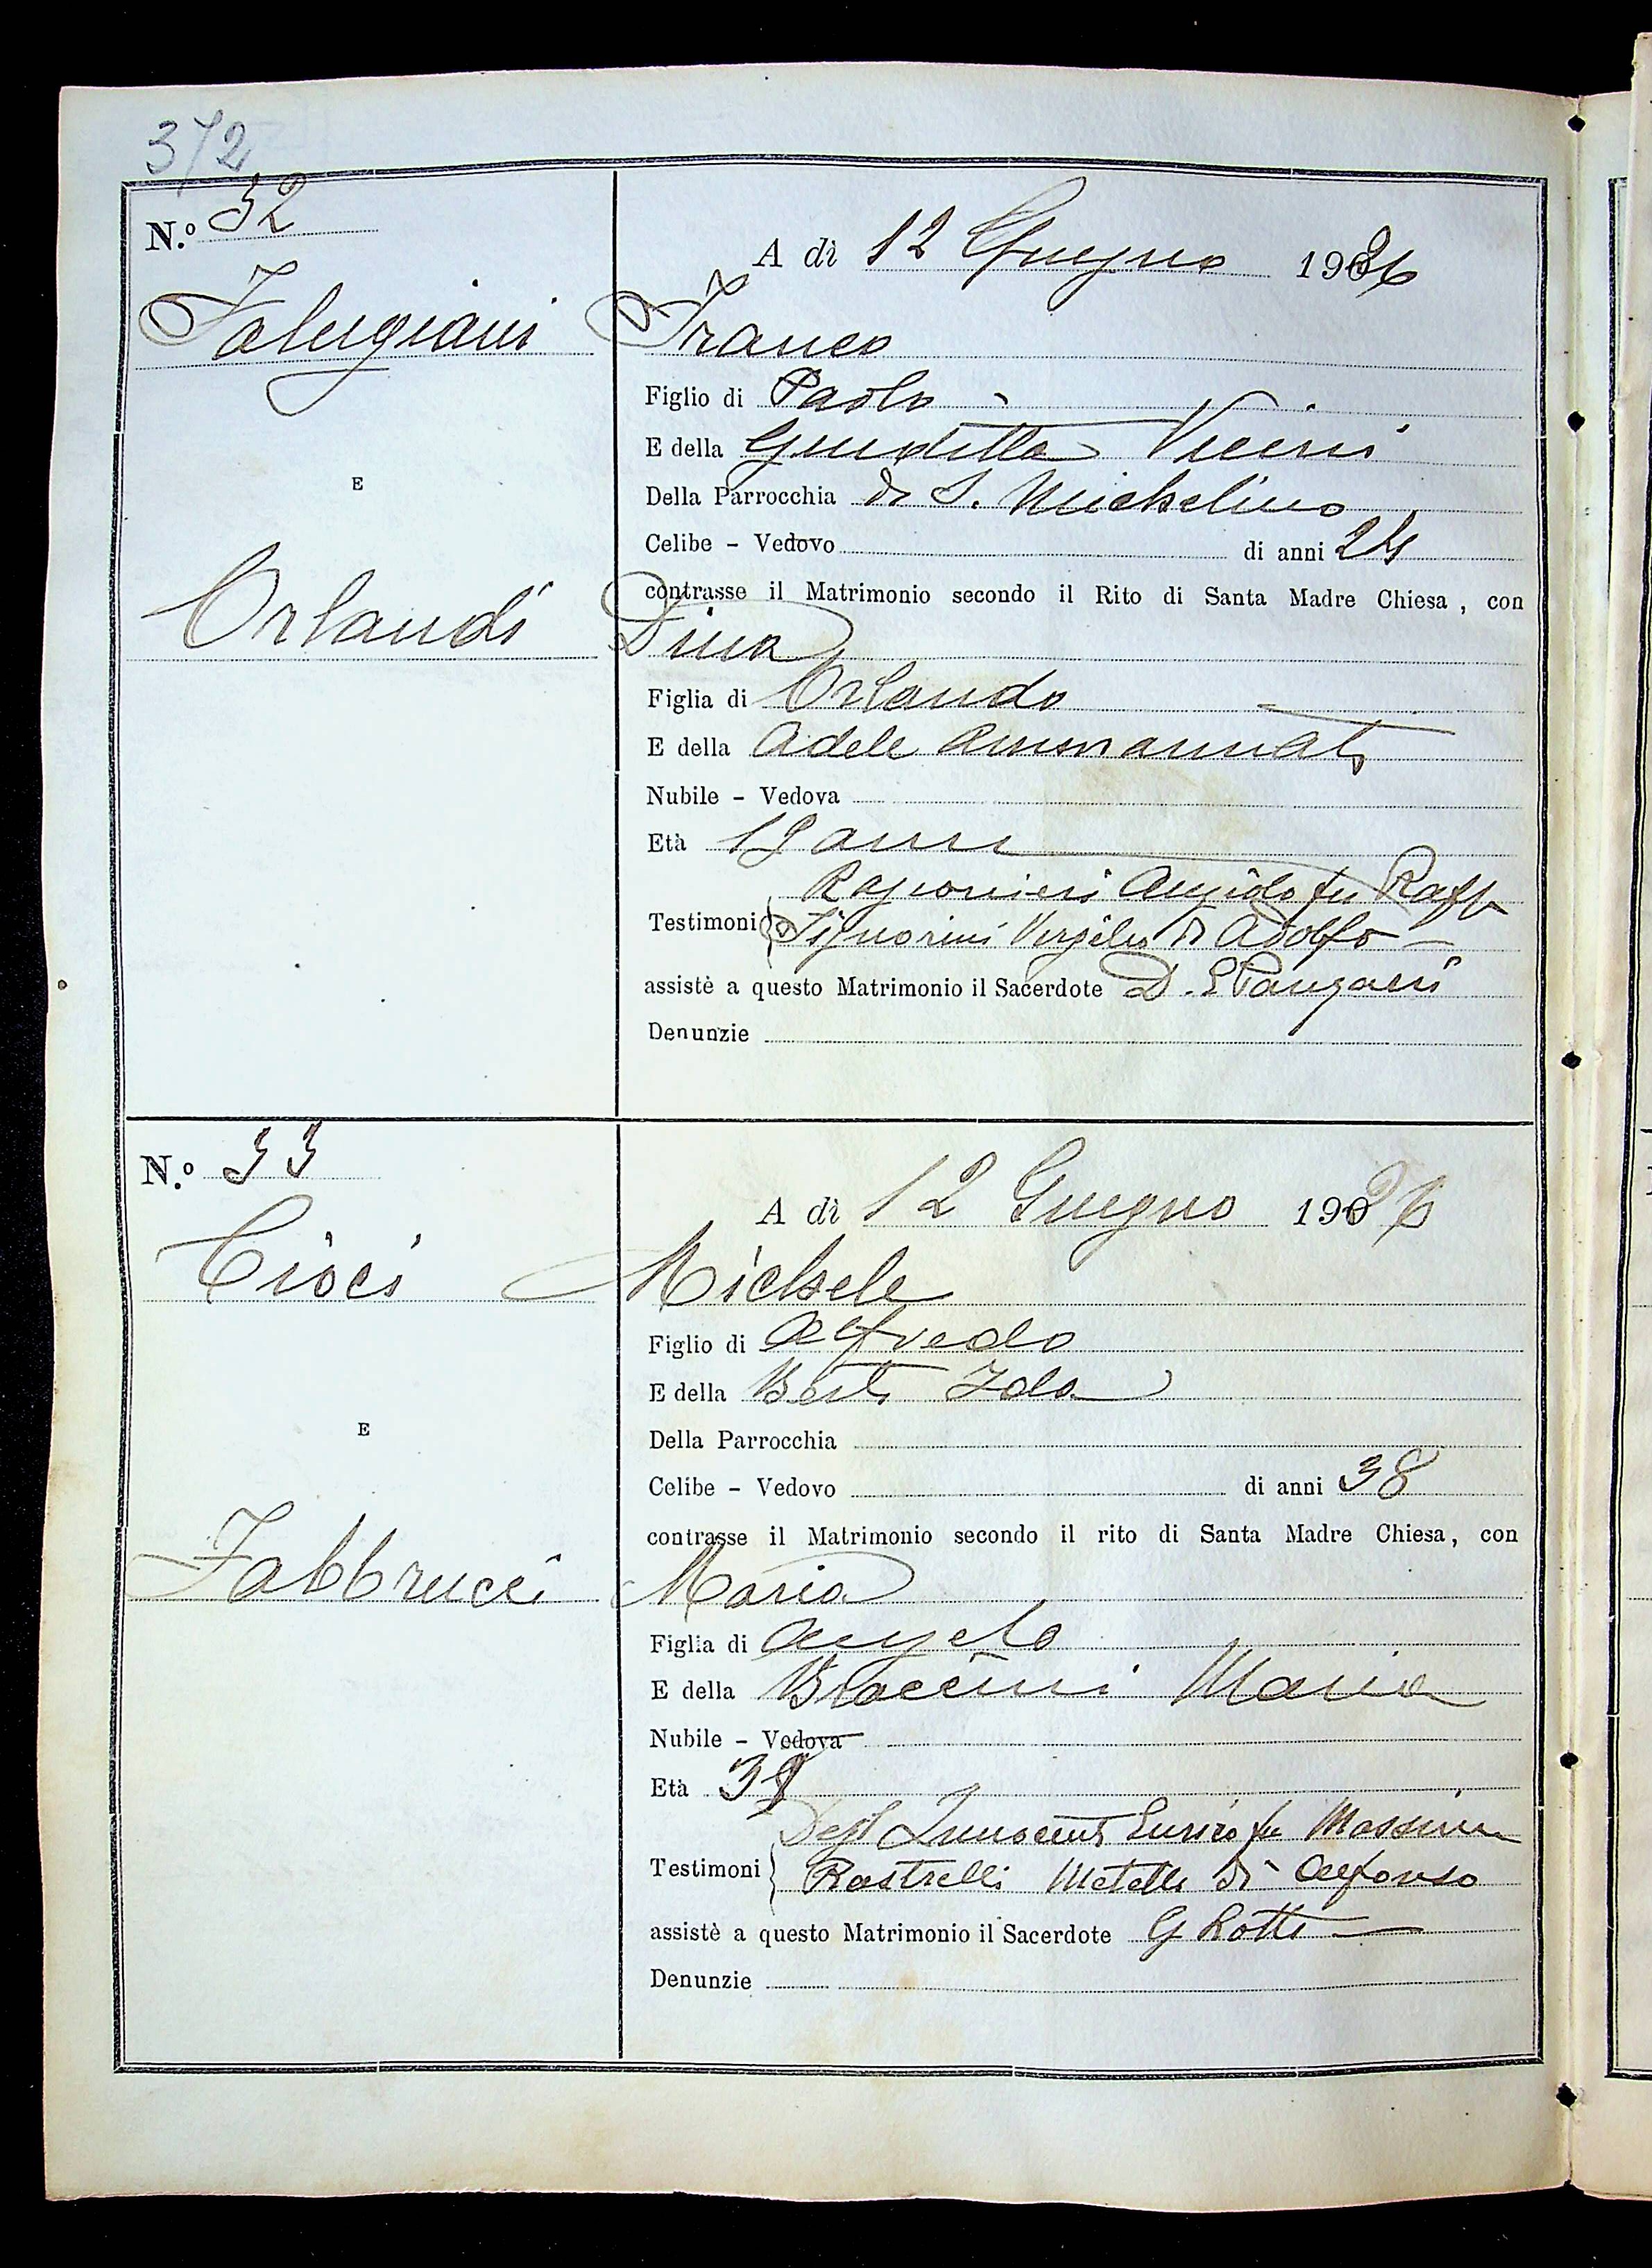 372
N.º 32
A dì 12 Giugno 1926
Falugiani Franco
Figlio di Paolo
E della Giuditta Vicini
E
Della Parrocchia di S. Michelino
Celibe - Vedovo di anni 24
contrasse il Matrimonio secondo il Rito di Santa Madre Chiesa, con
Orlandi Dina
Figlia di Orlando
E della Adele Ammannati
Nubile - Vedova
Età 19 anni
Ragionieri Angiolo fu Raff
Testimoni Signorini Vergilio di Adolfo
assistè a questo Matrimonio il Sacerdote D.
Denunzie
N.º 33
A dì 12 Giugno 1926
Cioci Michele
Figlio di Alfredo
E della Berti Ida
E
Della Parrocchia
Celibe - Vedovo di anni 38
contrasse il Matrimonio secondo il rito di Santa Madre Chiesa, con
Fabbrucci Maria
Figlia di Angelo
E della Maria
Nubile - Vedova
Età
Degl Innocenti Enrico fu Massimo
Testimoni Rastrelli Metello di Alfonso
assistè a questo Matrimonio il Sacerdote G Rotti
Denunzie